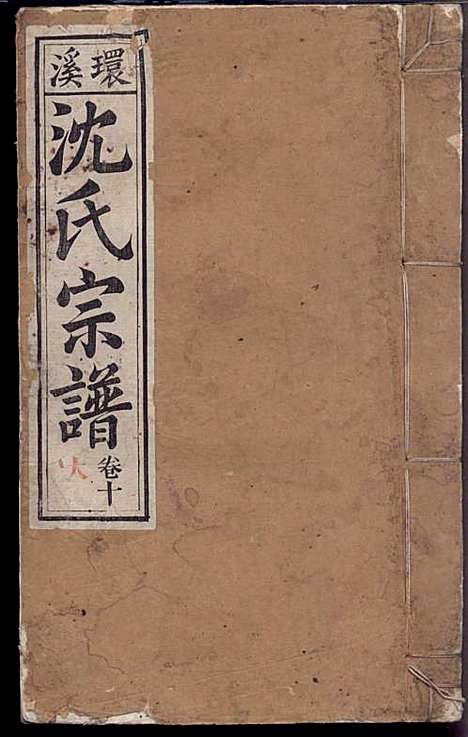 環溪
沈氏宗譜
卷十
火